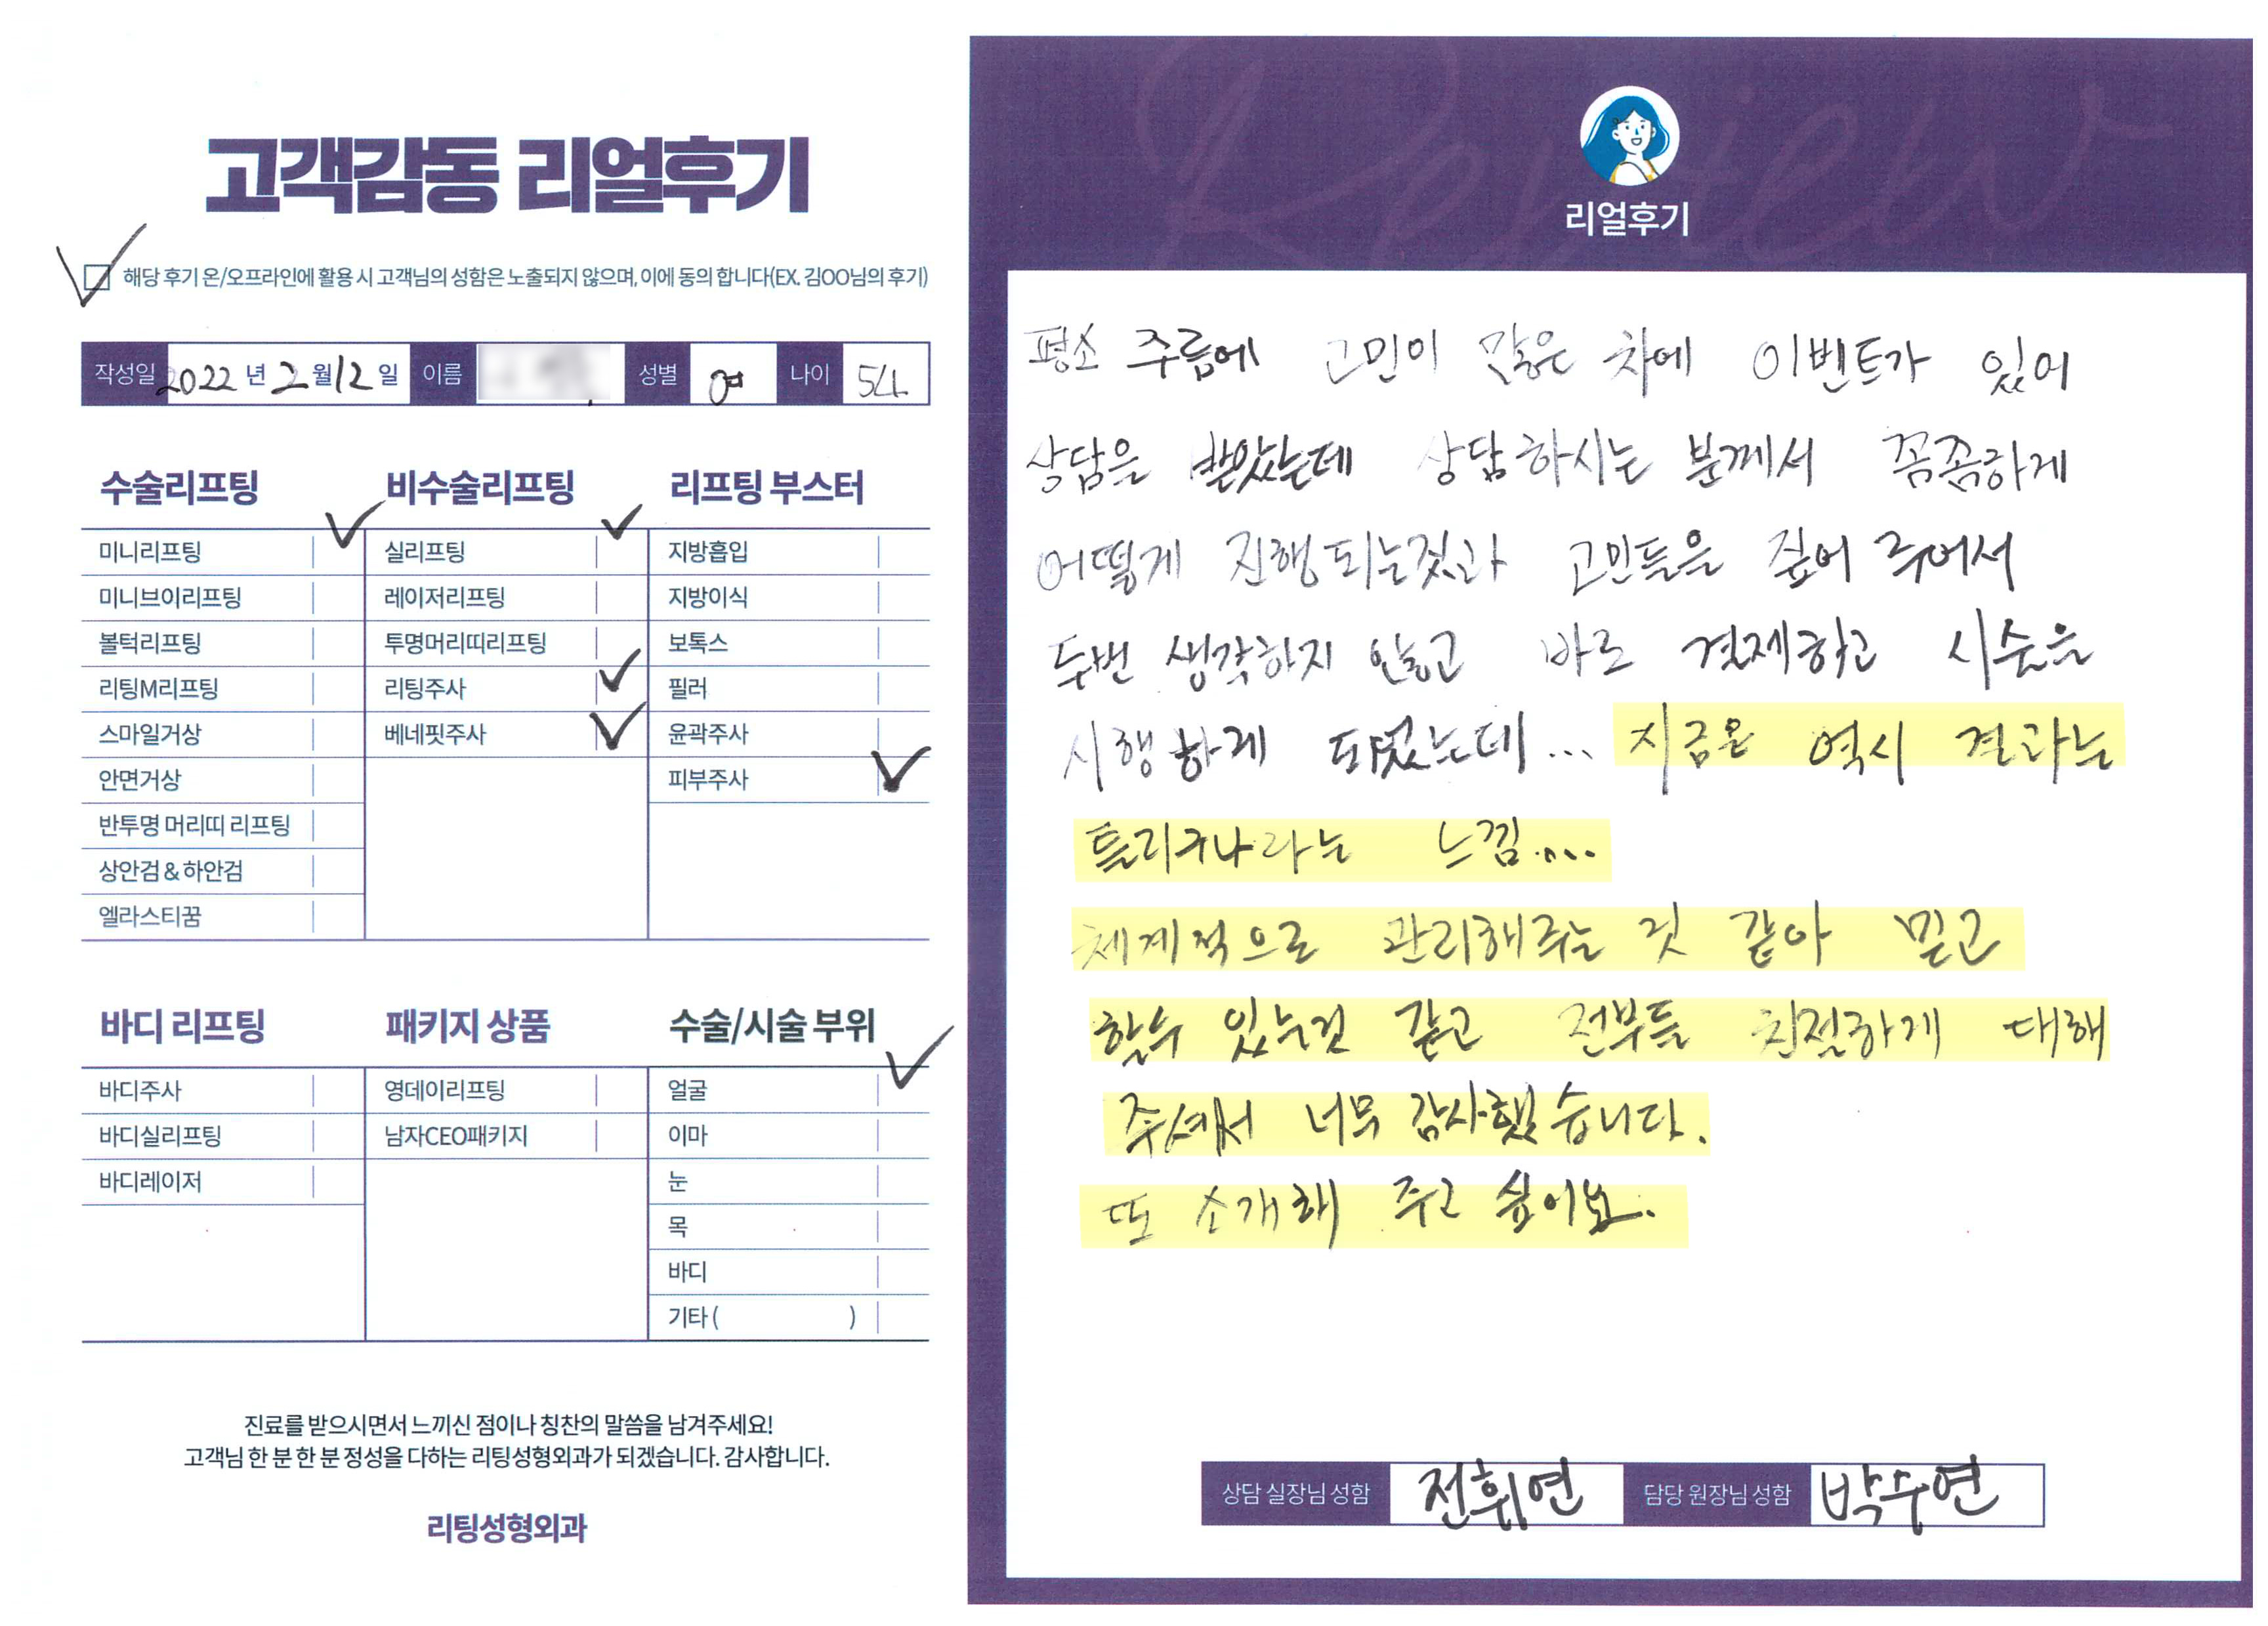 고객감동 리얼후기
해당 후기 온/오프라인에 활용 시 고객님의 성함은 노출되지 않으며, 이에 동의 합니다(EX. 김OO님의 후기)
작성일 2022 년 2 월 12 일 이름 성별 여 나이 54
수술리프팅
미니리프팅
미니브이리프팅
볼턱리프팅
리팅M리프팅
스마일거상
안면거상
반투명 머리띠 리프팅
상안검 & 하안검
엘라스티꿈
비수술리프팅
실리프팅
레이저리프팅
투명머리띠리프팅
리팅주사
베네핏주사
리프팅 부스터
지방흡입
지방이식
보톡스
필러
윤곽주사
피부주사
바디 리프팅
바디주사
바디실리프팅
바디레이저
패키지 상품
영데이리프팅
남자CEO패키지
수술/시술 부위
얼굴
이마
눈
목
바디
기타 ( )
진료를 받으시면서 느끼신 점이나 칭찬의 말씀을 남겨주세요!
고객님 한 분 한 분 정성을 다하는 리팅성형외과가 되겠습니다. 감사합니다.
리팅성형외과
Review
리얼후기
평소 주름에 고민이 많은 차에 이벤트가 있어
상담을 받았는데 상담하시는 분께서 꼼꼼하게
어떻게 진행되는것과 고민들을 짚어 주어서
두번 생각하지 않고 바로 결제하고 시술을
시행하게 되었는데... 지금은 역시 결과는
틀리구나라는 느낌....
체계적으로 관리해주는 것 같아 믿고
할수 있는것 같고 전부들 친절하게 대해
주셔서 너무 감사했습니다.
또 소개해 주고 싶어요.
상담 실장님 성함 전휘연 담당 원장님 성함 박수연